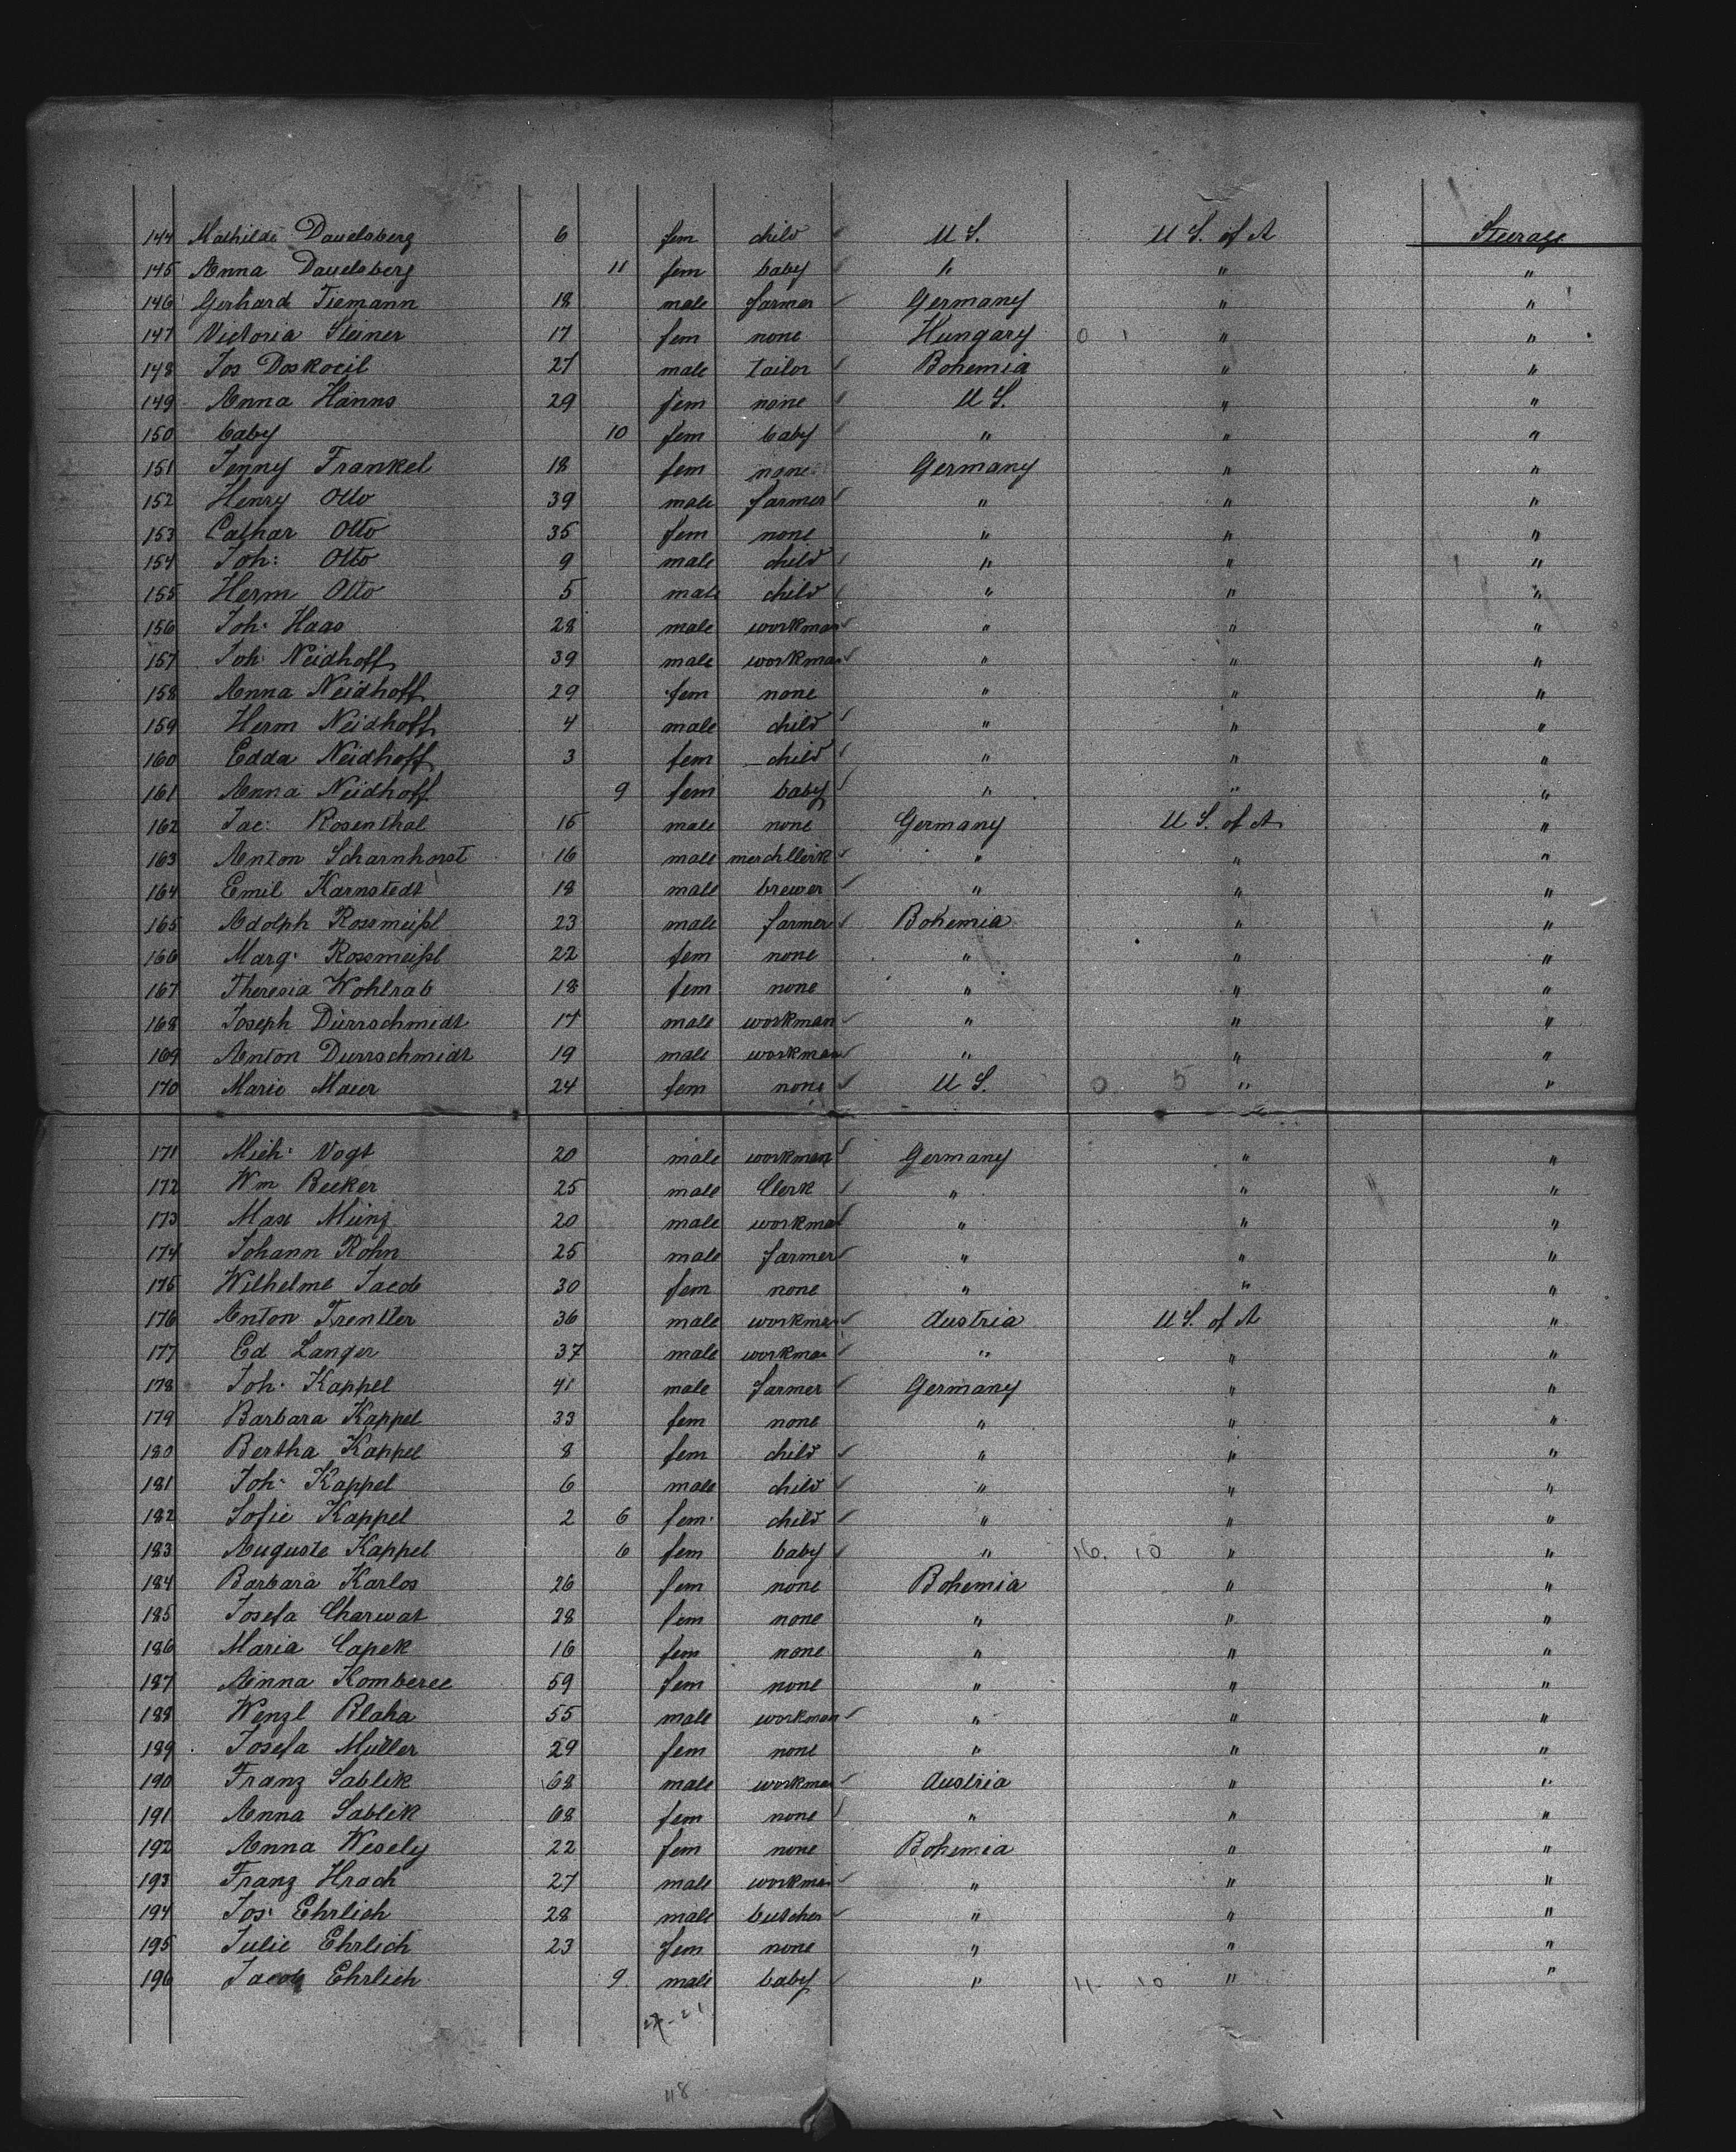 144 Mathilde Dauelsberg 6 fem child U S. U S. of A Steerage
145 Anna Dauelsberg 11 fem baby " " "
146 Gerhard Tiemann 18 male farmer Germany " "
147 Victoria Steiner 17 fem none Hungary 0 1 " "
148 Jos Doskocil 27 male tailor Bohemia " "
149 Anna Hanns 29 fem none U S. " "
150 baby 10 fem baby " " "
151 Jenny Frankel 18 fem none Germany " "
152 Henry Otto 39 male farmer " " "
153 Cathar Otto 35 fem none " " "
154 Joh: Otto 9 male child " " "
155 Herm Otto 5 male child " " "
156 Joh: Haas 28 male workman " " "
157 Joh: Neidhoff 39 male workman " " "
158 Anna Neidhoff 29 fem none " " "
159 Herm Neidhoff 4 male child " " "
160 Edda Neidhoff 3 fem child " " "
161 Anna Neidhoff 9 fem baby " " "
162 Jac: Rosenthal 15 male none Germany U S. of A "
163 Anton Scharnhorst 16 male merchclerk " " "
164 Emil Karnstedt 18 male brewer " " "
165 Adolph Rossmeißl 23 male farmer Bohemia " "
166 Marg: Rossmeißl 22 fem none " " "
167 Theresia Wohlrab 18 fem none " " "
168 Joseph Dürrschmidt 17 male workman " " "
169 Anton Durrschmidt 19 male workman " " "
170 Marie Maier 24 fem none U S. 0 5 " "
171 Mich: Vogt 20 male workman Germany " "
172 Wm Becker 25 male Clerk " " "
173 Max Münz 20 male workman " " "
174 Johann Rohn 25 male farmer " " "
175 Wilhelme Jacob 30 fem none " " "
176 Anton Trentler 36 male workman Austria U S. of A "
177 Ed Langer 37 male workman " " "
178 Joh: Kappel 41 male farmer Germany " "
179 Barbara Kappel 33 fem none " " "
180 Bertha Kappel 8 fem child " " "
181 Joh: Kappel 6 male child " " "
182 Sofie Kappel 2 6 fem child " " "
183 Auguste Kappel 6 fem baby " 16. 10 " "
184 Barbara Karlos 26 fem none Bohemia " "
185 Josefa Charwat 28 fem none " " "
186 Maria Capek 16 fem none " " "
187 Anna Komberec 59 fem none " " "
188 Wenzl Blaha 55 male workman " " "
189 Josefa Müller 29 fem none " " "
190 Franz Sablik 68 male workman Austria " "
191 Anna Sablik 68 fem none " " "
192 Anna Wesely 22 fem none Bohemia " "
193 Franz Hrach 27 male workman " " "
194 Jos: Ehrlich 28 male butcher " " "
195 Julie Ehrlich 23 fem none " " "
196 Jacob Ehrlich 9 male baby " 11. 10 " "